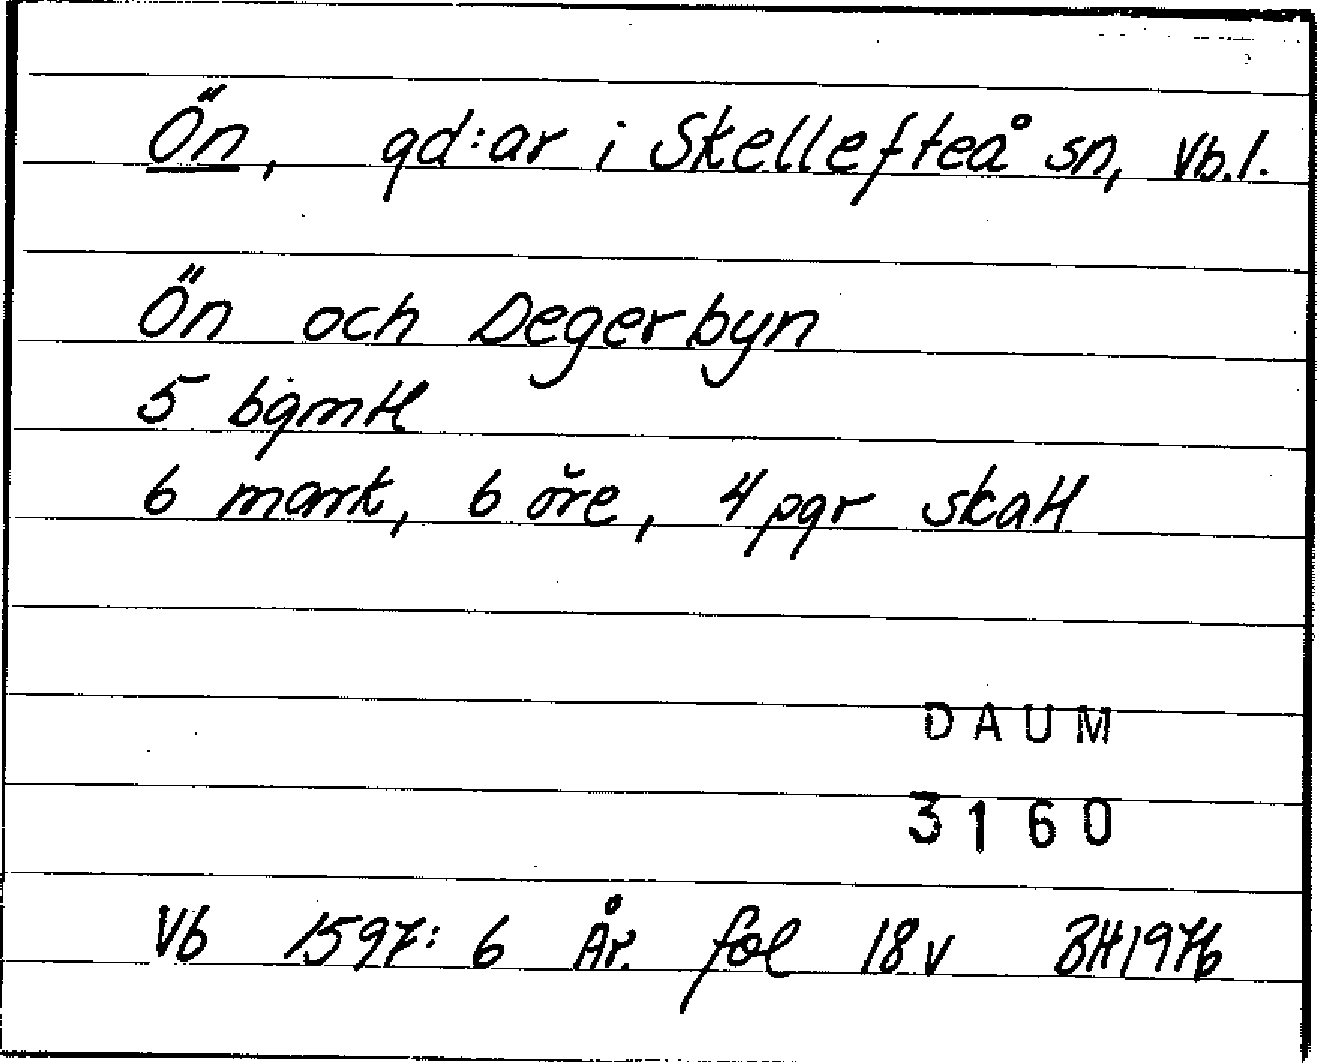 Ön, gd:ar i Skellefteå sn, Vb.l.
Ön och Degerbyn
5 bgmtl
6 mark, 6 öre, 4 pgr skatt
DAUM
3160
Vb 1597:6 År. fol 18v BH1976